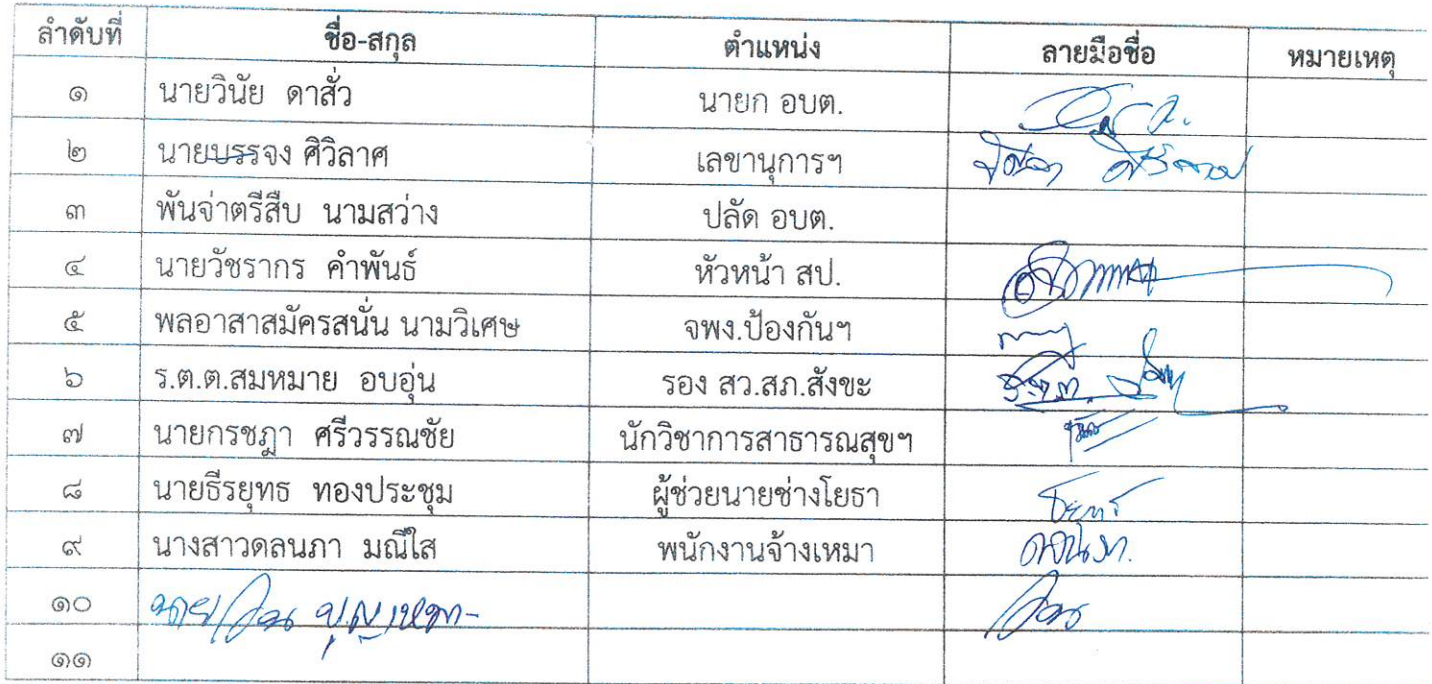 ลำดับที่ ชื่อ-สกุล ตำแหน่ง ลายมือชื่อ หมายเหตุ
๑ นายวินัย ดาสั่ว นายก อบต.
๒ นายบรรจง ศิวิลาศ เลขานุการฯ
๓ พันจ่าตรีสืบ นามสว่าง ปลัด อบต.
๔ นายวัชรากร คำพันธ์ หัวหน้า สป.
๕ พลอาสาสมัครสนั่น นามวิเศษ จพง.ป้องกันฯ
๖ ร.ต.ต.สมหมาย อบอุ่น รอง สว.สภ.สังขะ ร.ต.ต.
๗ นายกรชฎา ศรีวรรณชัย นักวิชาการสาธารณสุขฯ
๘ นายธีรยุทธ ทองประชุม ผู้ช่วยนายช่างโยธา
๙ นางสาวดลนภา มณีใส พนักงานจ้างเหมา
๑๐ นาย
๑๑